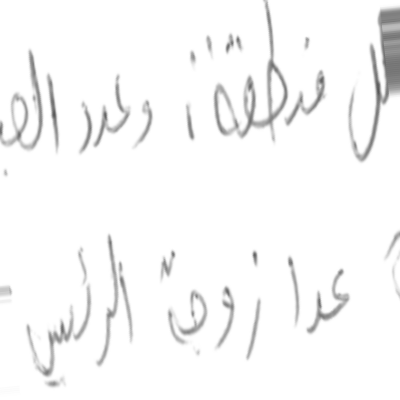 منطقة، وعدد
عدا زوجة الرئيس